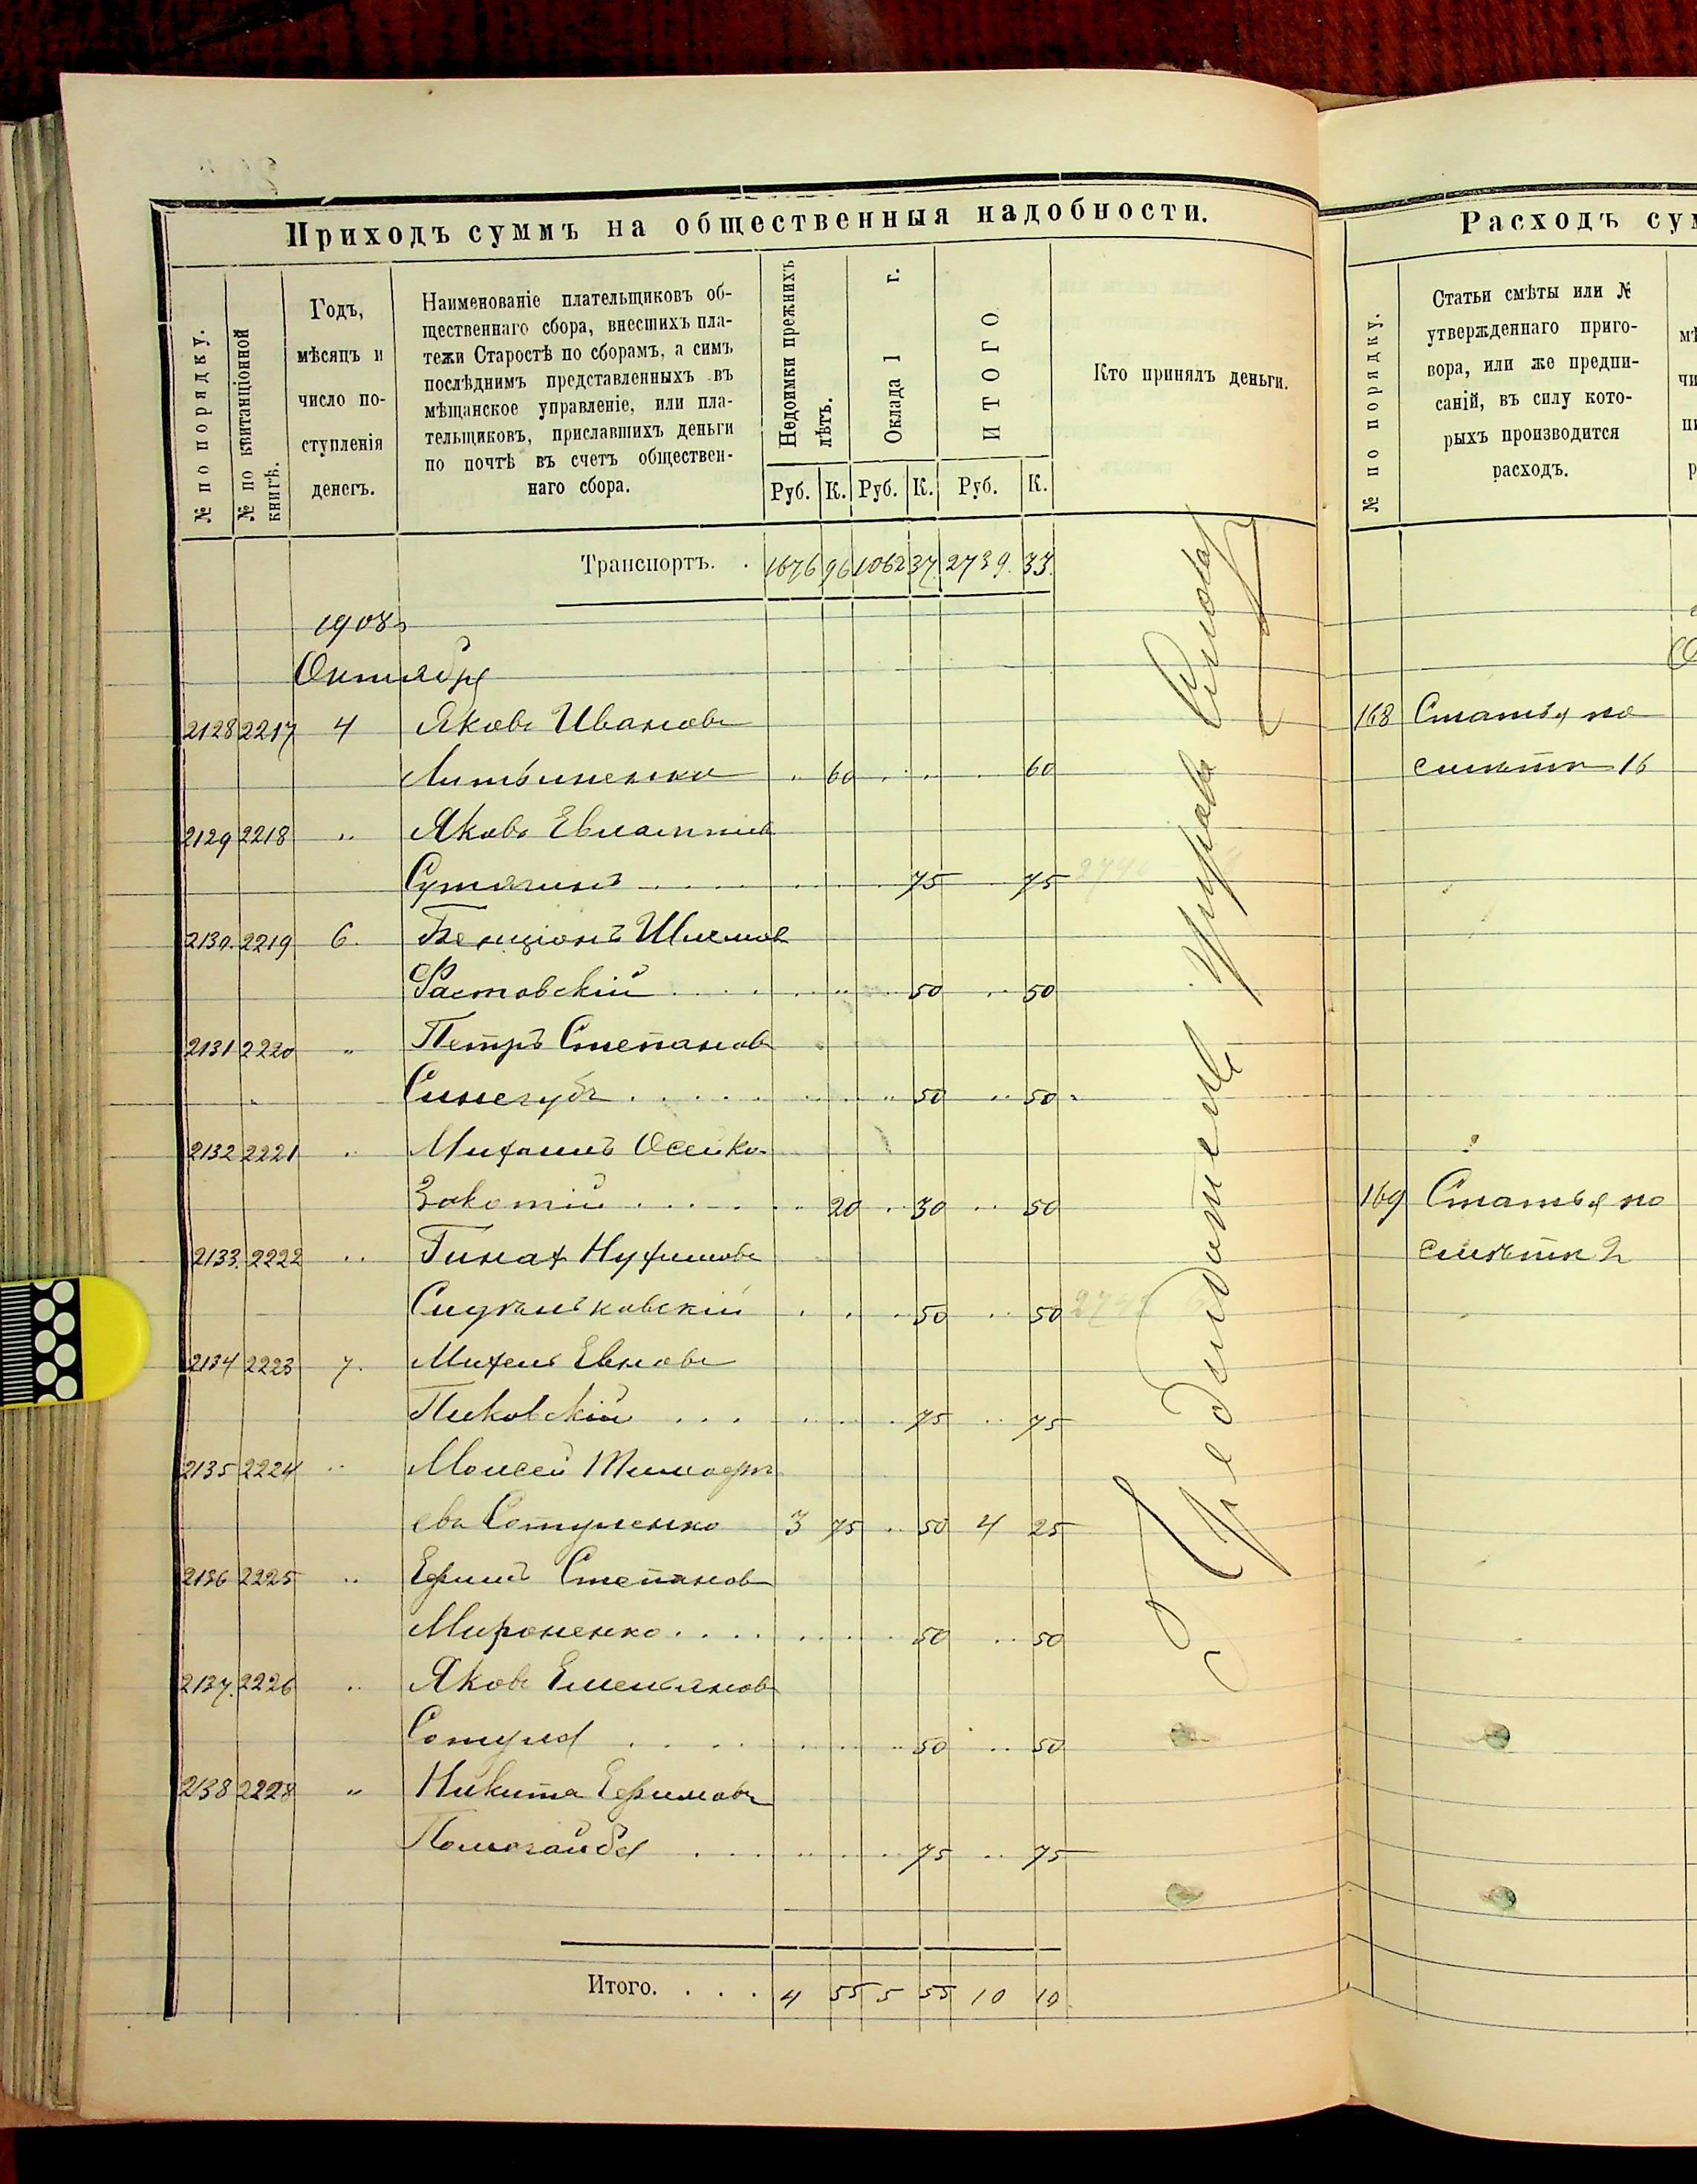 Приходъ суммъ на общественныя надобности.
№ по порядку.
№ по квитанціонной книгѣ.
Годъ,
мѣсяцъ и
число по-
ступленія
денегъ.
Наименованіе плательщиковъ об-
щественнаго сбора, внесшихъ пла-
тежи Старостѣ по сборамъ, а симъ
послѣднимъ представленныхъ въ
мѣщанское управленіе, или пла-
тельщиковъ, приславшихъ деньги
по почтѣ въ счетъ обществен-
наго сбора.
Недоимки прежнихъ лѣтъ.
Оклада 1 г.
ИТОГО.
Кто принялъ деньги.
Руб. К. Руб. К. Руб. К.
Транспортъ. . 1676 96 1062 37 2739. 33.
1908
Октября
2128 2217 4 Яковъ Ивановъ
Литвиненко 60 60
2129 2218 " Яковъ
Сутягинъ 75 75
2130. 2219 6. Бенціонъ Шлемов
Фастовскій 50 50
2131 2220 " Петръ Степанов
Синегубъ 50 50
2132 2221 " Михаилъ
20 30 50
2133. 2222 " Нухимовъ
50 50
2134 2223 7. Михель
Пиковскій 75 75
2135 2224 " Моисей Тимофѣ
евъ Сотуленко 3 75 50 4 25
2136 2225 " Ефимъ Степанов
Мироненко 50 50
2137. 2226 " Яковъ Емельянов
Сотула 50 50
2138 2228 " Никита Ефимовъ
Помогайба 75 75
Итого. . . . 4 55 5 55 10 10
Расходъ сум
№ по порядку.
Статьи смѣты или №
утвержденнаго приго-
вора, или же предпи-
саній, въ силу кото-
рыхъ производится
расходъ.
168 Статья по
смѣтѣ 16
169 Статья по
смѣтѣ 2